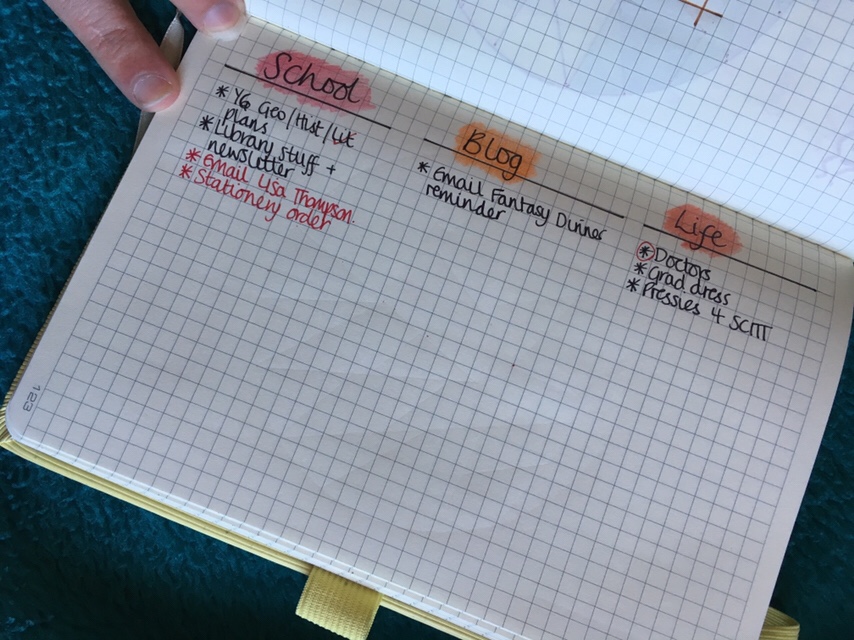 School
* Y6 Geo/Hist/Lit
plans
* Library stuff +
newsletter
* Email Lisa Thompson.
* Stationery order
Blog
* Email Fantasy Dinner
reminder
Life
* Doctors
* Grad dress
* Pressies 4 SCITT
123